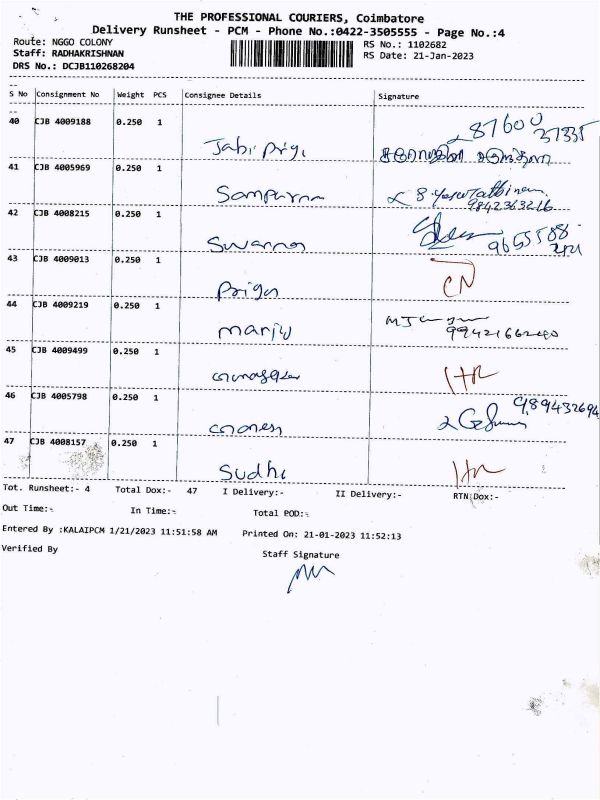 THE PROFESSIONAL COURIERS, Coimbatore
Delivery Runsheet - PCM - Phone No.:0422-3505555 - Page No.:4
Route: NGGO COLONY
RS No.: 1102682
Staff: RADHAKRISHNAN
RS Date: 21-Jan-2023
DRS No.: DCJB110268204
S No Consignment No Weight PCS Consignee Details Signature
40 CJB 4009188 0.250 1
87600
37335
Jabi priya
41 CJB 4005969 0.250 1
Sampurna
9842363216
42 CJB 4008215 0.250 1
Swarna
43 CJB 4009013 0.250 1
Priya CN
44 CJB 4009219 0.250 1
Manju
45 CJB 4009499 0.250 1
46 CJB 4005798 0.250 1
989432694
47 CJB 4008157 0.250 1
Sudha
Tot. Runsheet:- 4 Total Dox:- 47 I Delivery:- II Delivery:- RTN Dox:-
Out Time:- In Time:- Total POD:-
Entered By :KALAIPCM 1/21/2023 11:51:58 AM Printed On: 21-01-2023 11:52:13
Verified By Staff Signature